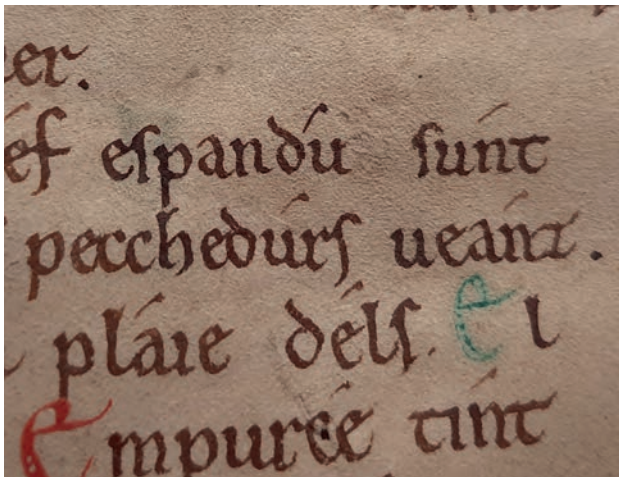 er.
ef espandu sunt
pecchedurs ueant.
plaie dels. El
Empuree tint